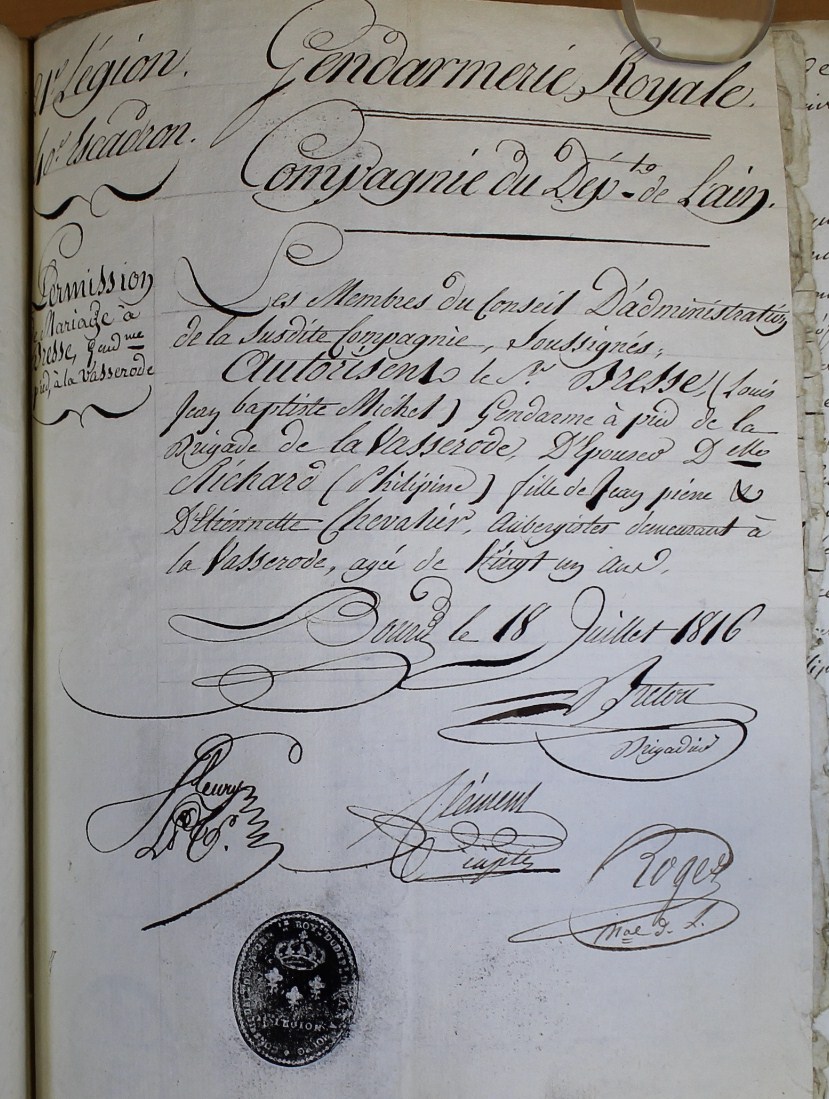 Légion.
Escadron.
Gendarmerie Royale.
Compagnie du Dép.to de L'ain.
Permission
de Mariage à
Bresse, Gend.me
à pied, à la Vasserode
Les Membres du Conseil D'administration
de la Susdite Compagnie, Soussignés,
Autorisent le Sr. Bresse, (Louis
Jean baptiste Michel) Gendarme à pied de la
Brigade de la Vasserode, D'Epouser Delle
Richard (Philipine) fille de Jean piérre &
D'Etiennette Chevalier, aubergistes demeurant à
la Vasserode, agée de Vingt un ans.
Bourg le 18 Juillet 1816
Brigadier
Fleury
Clément
Roger
Mal d. L.